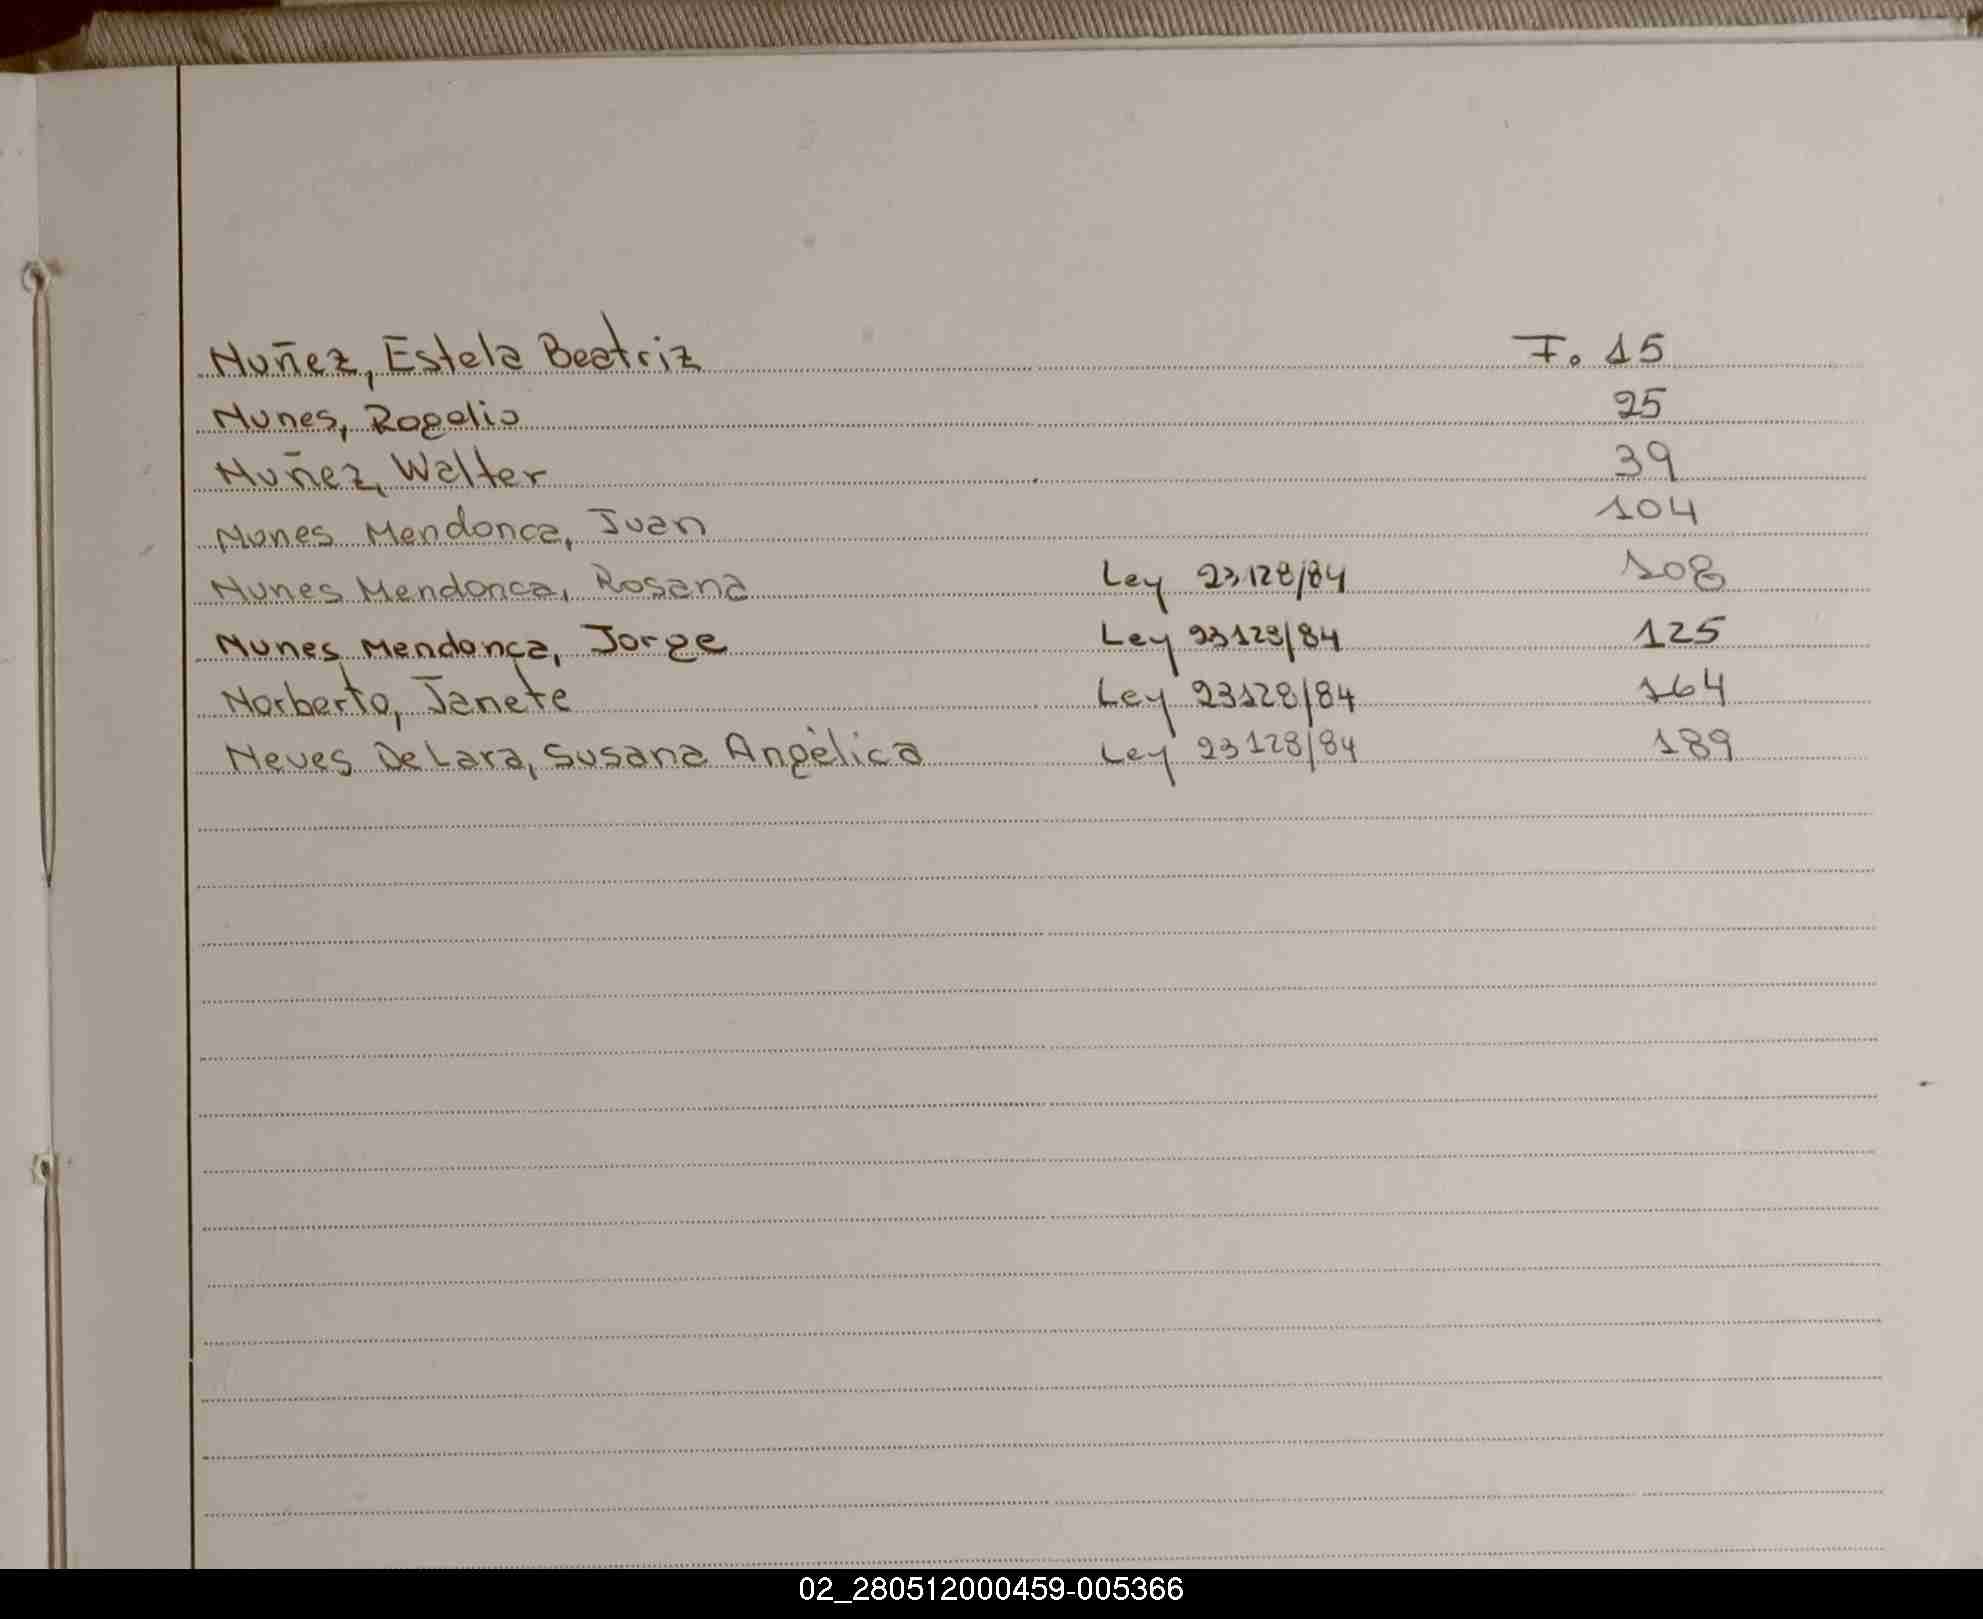 Nuñez, Estela Beatriz F. 15
Nunes, Rogelio 25
Nuñez, Walter 39
Nunes Mendonca, Juan 104
Nunes Mendonca, Rosana Ley 23128/84 108
Nunes Mendonça, Jorge Ley 23128/84 125
Norberto, Janete Ley 23128/84 164
Neves De Lara, Susana Angèlica Ley 23128/84 189
02_280512000459-005366